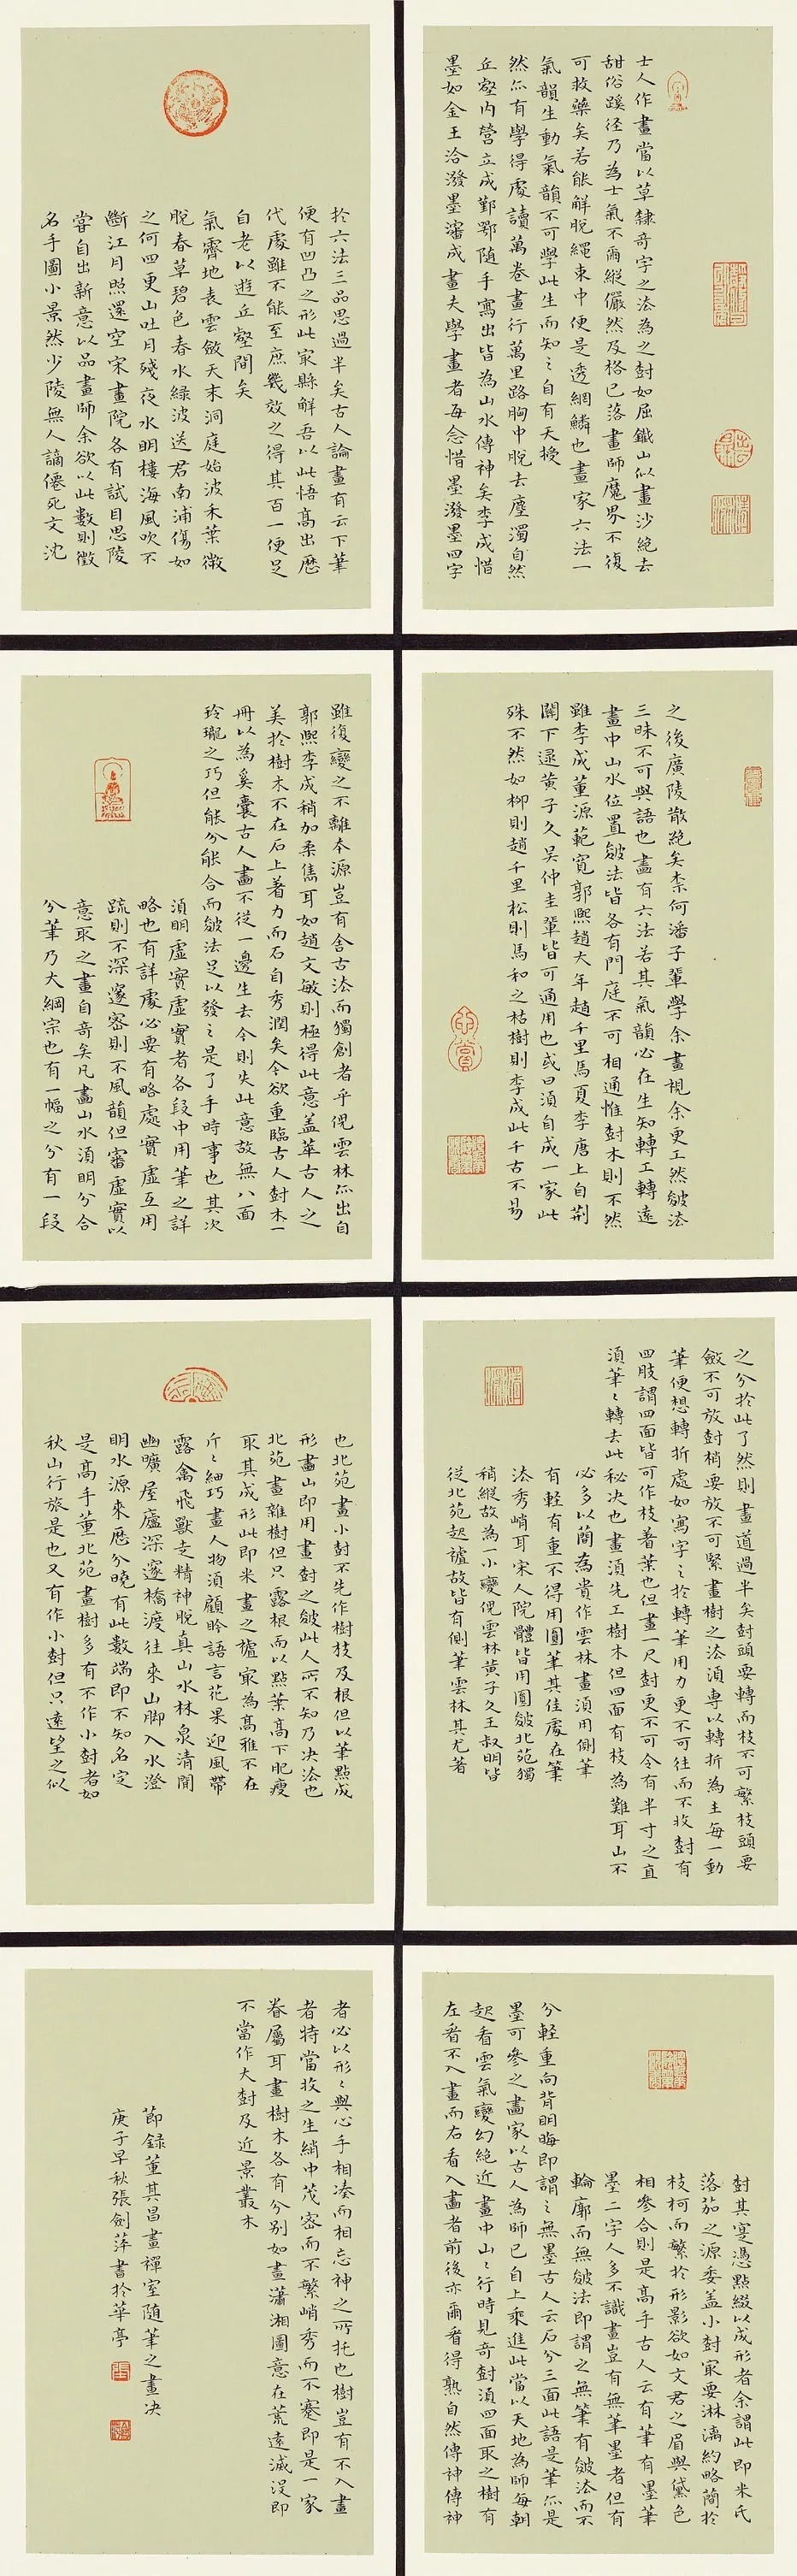 士人作畫當以草隸奇字之法為之尌如屈鐵山似畫沙絕去
甜俗蹊徑乃為士氣不爾縱儼然及格已落畫師魔界不復
可救藥矣若能解脫繩束中便是透網鱗也畫家六法一
氣韻生動氣韻不可學此生而知之自有天授
然亦有學得處讀萬卷書行萬里路胸中脫去塵濁自然
丘壑內營立成鄞鄂隨手寫出皆為山水傳神矣李成惜
墨如金王洽潑墨瀋成畫夫學畫者每念惜墨潑墨四字
於六法三品思過半矣古人論畫有云下筆
便有凹凸之形此最縣解吾以此悟高出歷
代處雖不能至庶幾效之得其百一便足
自老以遊丘壑間矣
氣霽地表雲斂天末洞庭始波木葉微
脫春草碧色春水綠波送君南浦傷如
之何四更山吐月殘夜水明樓海風吹不
斷江月照還空宋畫院各有試目思陵
嘗自出新意以品畫師余欲以此數則徵
名手圖小景然少陵無人謫僊死文沈
之後廣陵散絕矣柰何潘子輩學余畫視余更工然皴法
三昧不可與語也畫有六法若其氣韻必在生知轉工轉遠
畫中山水位置皴法皆各有門庭不可相通惟尌木則不然
雖李成董源範寬郭熙趙大年趙千里馬夏李唐上自荊
關下逯黃子久吳仲圭輩皆可通用也或曰須自成一家此
殊不然如柳則趙千里松則馬和之枯樹則李成此千古不易
雖復變之不離本源豈有舍古法而獨創者乎倪雲林亦出自
郭熙李成稍加柔雋耳如趙文敏則極得此意蓋萃古人之
美於樹木不在石上著力而石自秀潤矣今欲重臨古人尌木一
冊以為奚囊古人畫不從一邊生去今則失此意故無八面
玲瓏之巧但能分能合而皴法足以發之是了手時事也其次
須明虛實虛實者各段中用筆之詳
略也有詳處必要有略處實虛互用
疏則不深邃密則不風韻但審虛實以
意取之畫自奇矣凡畫山水須明分合
分筆乃大綱宗也有一幅之分有一段
之分於此了然則畫道過半矣尌頭要轉而枝不可繁枝頭要
斂不可放尌梢要放不可緊畫樹之法須專以轉折為主每一動
筆便想轉折處如寫字之於轉筆用力更不可往而不收尌有
四肢謂四面皆可作枝著葉也但畫一尺尌更不可令有半寸之直
須筆之轉去此秘決也畫須先工樹木但四面有枝為難耳山不
必多以簡為貴作雲林畫須用側筆
有輕有重不得用圓筆其佳處在筆
法秀峭耳宋人院體皆用圓皴北苑獨
稍縱故為一小變倪雲林黃子久王叔明皆
從北苑起爐故皆有側筆雲林其尤著
也北苑畫小尌不先作樹枝及根但以筆點成
形畫山即用畫尌之皴此人所不知乃決法也
北苑畫雜樹但只露根而以點葉高下肥瘦
取其成形此即米畫之爐最為高雅不在
斤之細巧畫人物須顧盻語言花果迎風帶
露禽飛獸走精神脫真山水林泉清閒
幽曠屋廬深邃橋渡往來山腳入水澄
明水源來歷分曉有此數端即不知名定
是高手董北苑畫樹多有不作小尌者如
秋山行旅是也又有作小尌但只遠望之似
尌其寔憑點綴以成形者余謂此即米氏
落茄之源委蓋小尌最要淋漓約略簡於
枝柯而繁於形影欲如文君之眉與黛色
相參合則是高手古人云有筆有墨筆
墨二字人多不識畫豈有無筆墨者但有
輪廓而無皴法即謂之無筆有皴法而不
分輕重向背明晦即謂之無墨古人云石分三面此語是筆亦是
墨可參之畫家以古人為師已自上乘進此當以天地為師每朝
起看雲氣變幻絕近畫中山之行時見奇尌須四面取之樹有
左看不入畫而右看入畫者前後亦爾看得熟自然傳神傳神
者必以形之與心手相湊而相忘神之所托也樹豈有不入畫
者特當收之生綃中茂密而不繁峭秀而不蹇即是一家
眷屬耳畫樹木各有分別如畫瀟湘圖意在荒遠滅沒即
不當作大尌及近景叢木
節錄董其昌畫禪室隨筆之畫決
庚子早秋張劍萍書於華亭